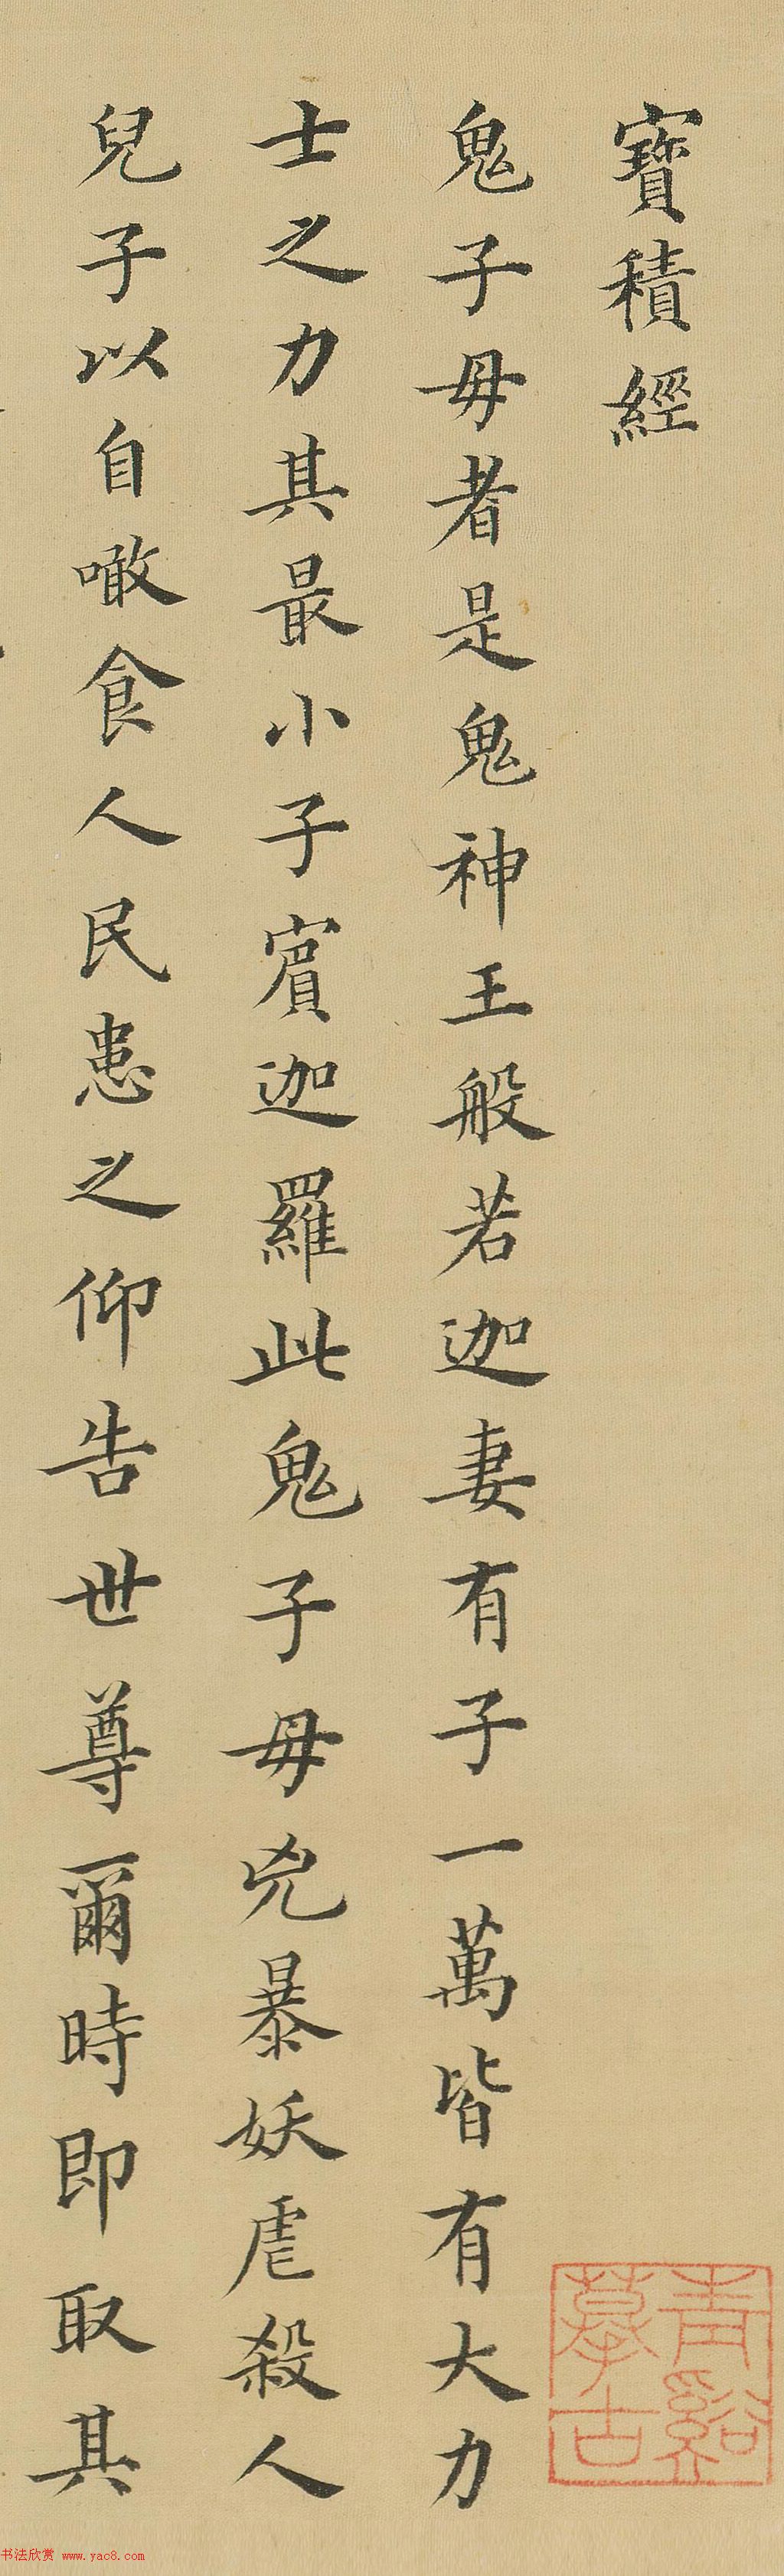 寶積經
鬼子母者是鬼神王般若迦妻有子一萬皆有大力
士之力其最小子賓迦羅此鬼子母兇暴妖虐殺人
兒子以自噉食人民患之仰告世尊爾時即取其
青谿摹古
书法欣赏 www.yac8.com